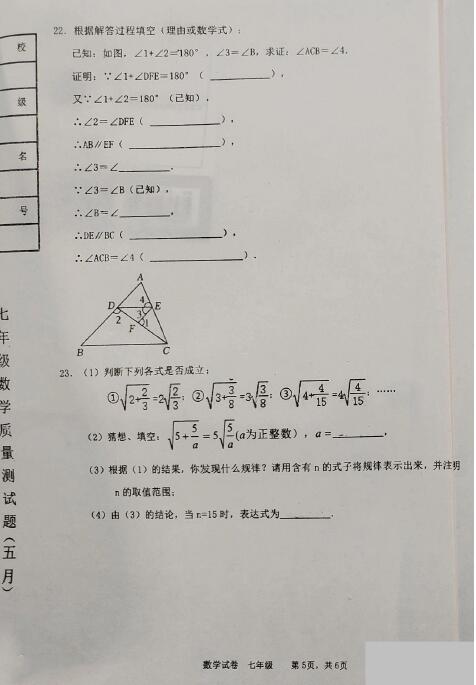 校
级
名
号
七年级数学质量测试题(五月)
22. 根据解答过程填空(理由或数学式):
已知: 如图, ∠1+∠2=180°, ∠3=∠B, 求证: ∠ACB=∠4.
证明: ∵∠1+∠DFE=180° ( ________ ),
又∵∠1+∠2=180° (已知),
∴∠2=∠DFE ( ________ ),
∴AB∥EF ( ________ ),
∴∠3=∠________.
∵∠3=∠B(已知),
∴∠B=∠________,
∴DE∥BC ( ________ ),
∴∠ACB=∠4 ( ________ ).
A
D 4 E
2 3
F 1
B C
23. (1) 判断下列各式是否成立:
①√(2+2/3)=2√(2/3); ②√(3+3/8)=3√(3/8); ③√(4+4/15)=4√(4/15); ……
(2) 猜想、填空: √(5+5/a)=5√(5/a)(a为正整数), a=________,
(3) 根据 (1) 的结果, 你发现什么规律? 请用含有 n 的式子将规律表示出来, 并注明
n 的取值范围;
(4) 由 (3) 的结论, 当 n=15 时, 表达式为________.
数学试卷 七年级 第5页, 共6页